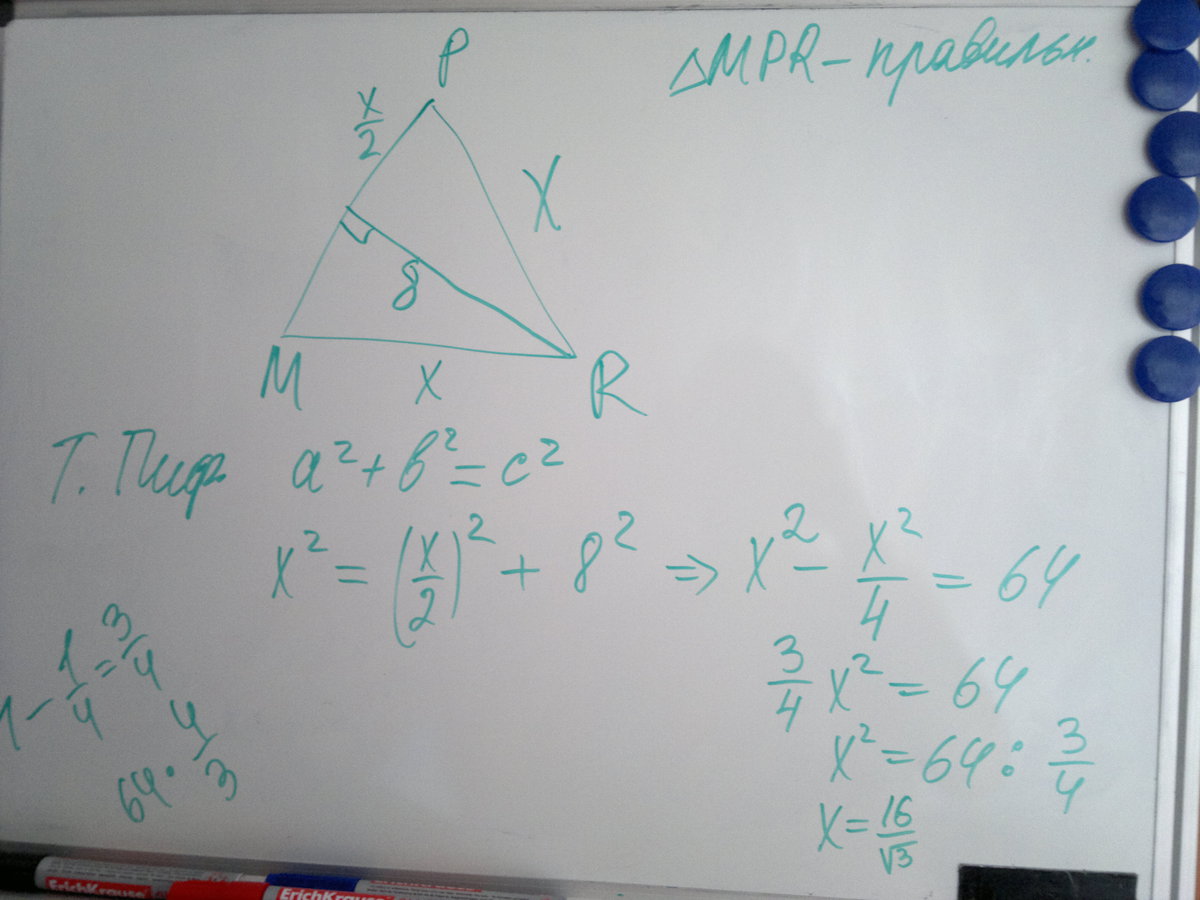 △MPR – правильн.
P
x/2
X
8
M
x
R
Т. Пиф. a² + b² = c²
x² = (x/2)² + 8² ⇒ x² – x²/4 = 64
1 – 1/4 = 3/4
3/4 x² = 64
64 · 4/3
x² = 64 : 3/4
x = 16/√3
ErichKrause
ErichKrause